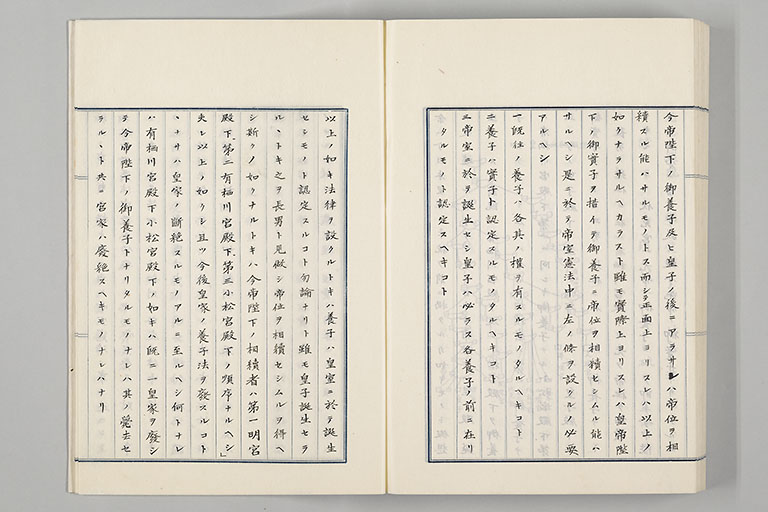 今帝陛下ノ御養子及ヒ皇子ノ後ニアラサレハ帝位ヲ相
續スル能ハサルモノトス而シテ正面上ヨリスレハ以上ノ
如クナラサルヘカラスト雖モ實際上ヨリスレハ皇帝陛
下ノ御實子ヲ措イテ御養子ニ帝位ヲ相續セシムル能ハ
サルヘシ是ニ於テ帝室憲法中ニ左ノ條ヲ設クルノ必要
アルヘシ
一既往ノ養子ハ各其ノ權ヲ有スルモノタルヘキコト
二養子ハ實子ト認定スルモノタルヘキコト
三帝室ニ於テ誕生セシ皇子ハ必ラス各養子ノ前ニ在リ
タルモノト認定スヘキコト
以上ノ如キ法律ヲ設クルトキハ養子ハ皇室ニ於テ誕生
セシモノト認定スルコト勿論ナリト雖モ皇子誕生セラ
ルヽトキ之ヲ長男ト見做シ帝位ヲ相續セシムルヲ得ヘ
シ斯クノ如クナルトキハ今帝陛下ノ相續者ハ第一明宮
殿下、第二有栖川宮殿下、第三小松宮殿下ノ順序ナルヘシ」
夫レ以上ノ如クシ且ツ今後皇家ノ養子法ヲ廢スルコト
ヽナサハ皇家ノ斷絶スルモノアルニ至ルヘシ何トナレ
ハ有栖川宮殿下小松宮殿下ノ如キハ既ニ一皇家ヲ廢シ
テ今帝陛下ノ御養子トナリタルモノナレハ其ノ薨去セ
ラルヽト共ニ宮家ハ廢絶スヘキモノナレハナリ